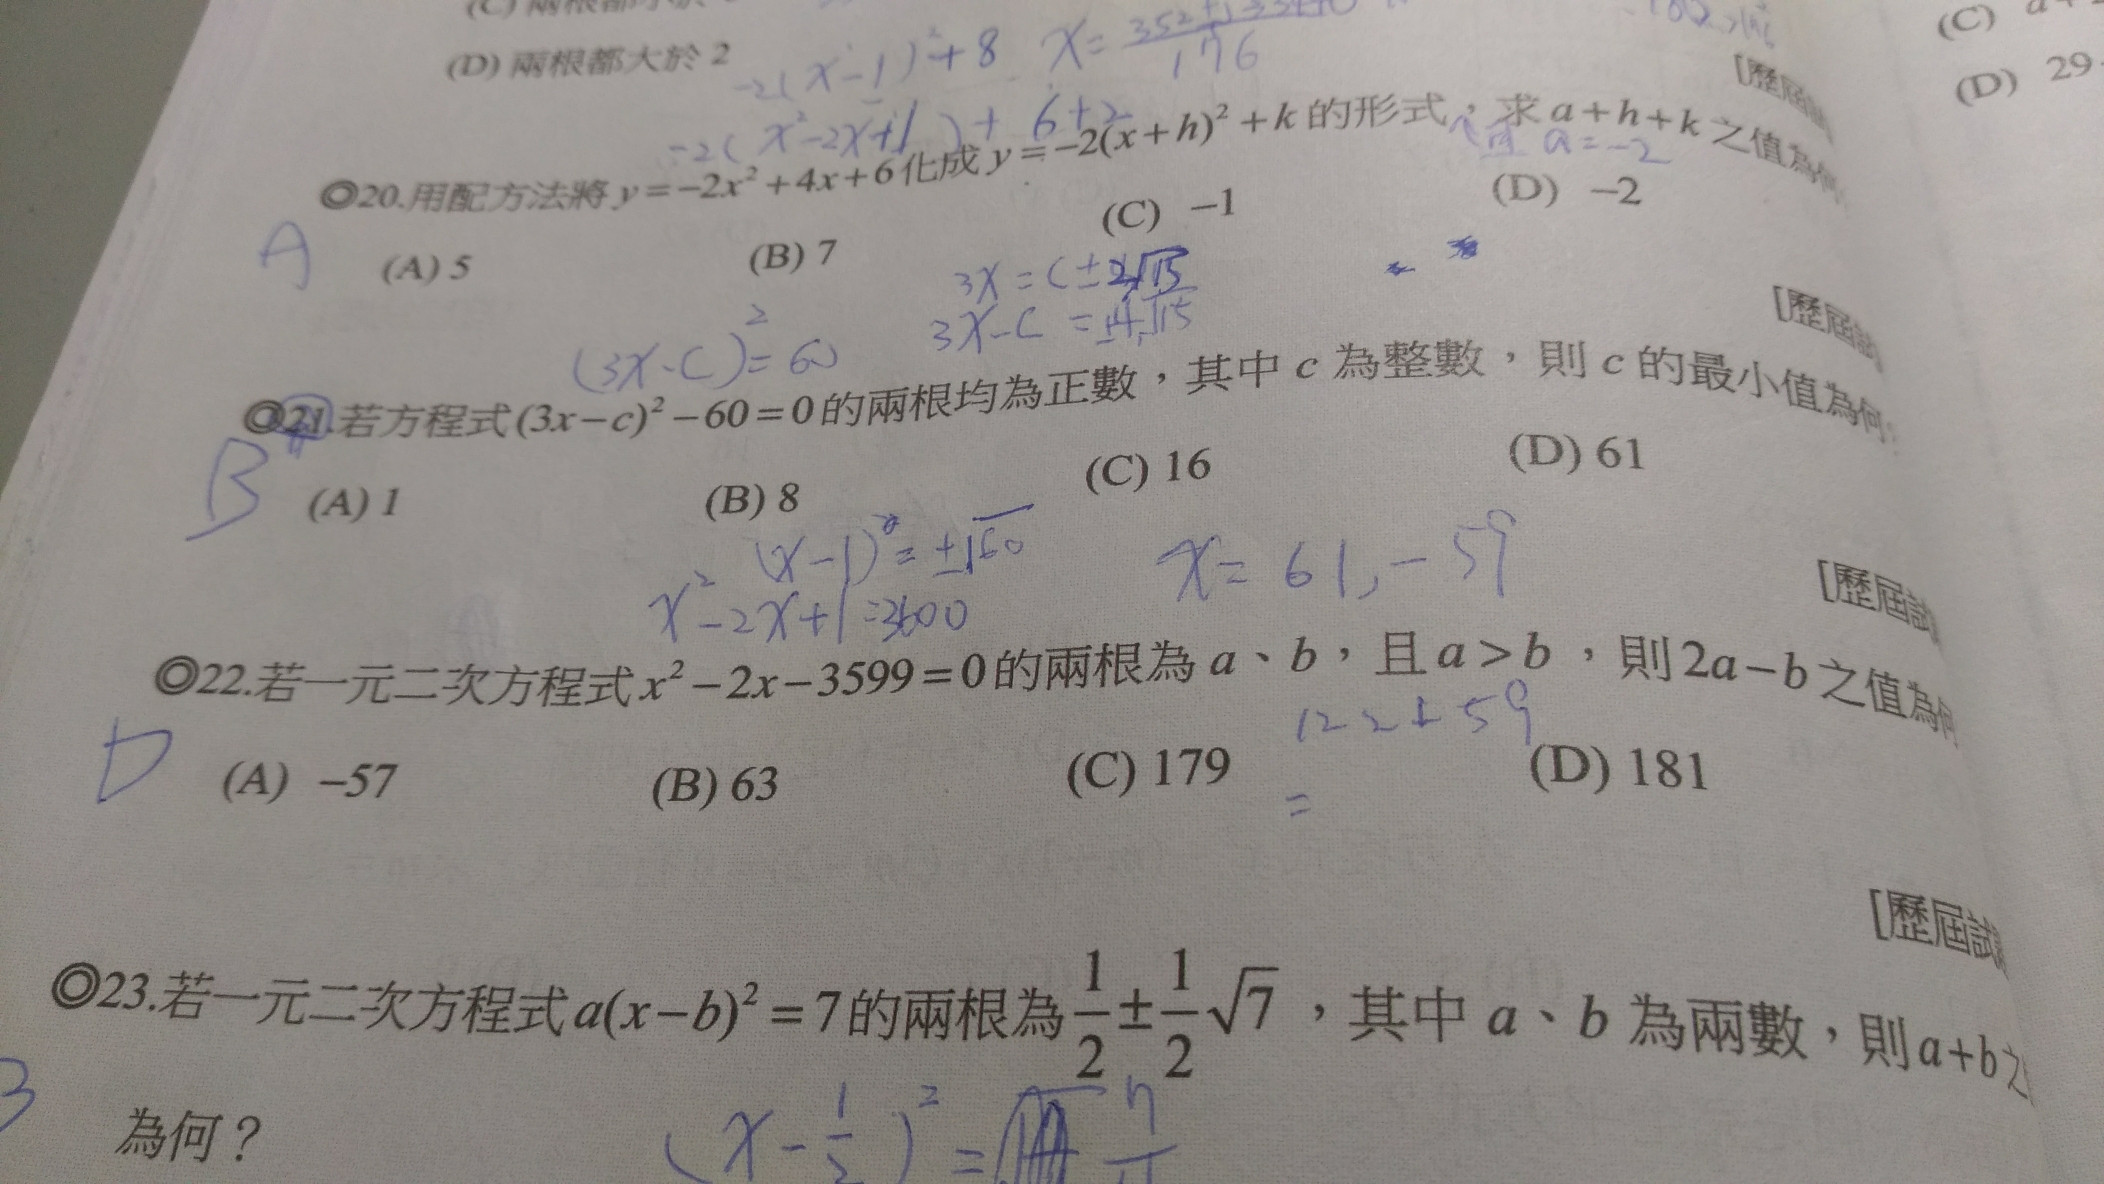 (D) 兩根都大於 2
-2(x-1)²+8
x=
176
(C)
(D) 29
[歷屆
-2(x²-2x+1)+6+2
a=-2
◎20.用配方法將 y=-2x²+4x+6 化成 y=-2(x+h)²+k 的形式,求 a+h+k 之值為何
A
(A) 5
(B) 7
(C) -1
(D) -2
3x=c±2√15
3x-c=±4√15
(3x-c)²=60
[歷屆試
◎21.若方程式 (3x-c)²-60=0 的兩根均為正數,其中 c 為整數,則 c 的最小值為何
B
(A) 1
(B) 8
(C) 16
(D) 61
(x-1)²=±√60
x²-2x+1=3600
x=61,-59
[歷屆試
◎22.若一元二次方程式 x²-2x-3599=0 的兩根為 a、b,且 a>b,則 2a-b 之值為何
122+59
=
D
(A) -57
(B) 63
(C) 179
(D) 181
[歷屆試
◎23.若一元二次方程式 a(x-b)²=7 的兩根為 1/2±1/2√7,其中 a、b 為兩數,則 a+b 之
為何?
(x-1/2)²=